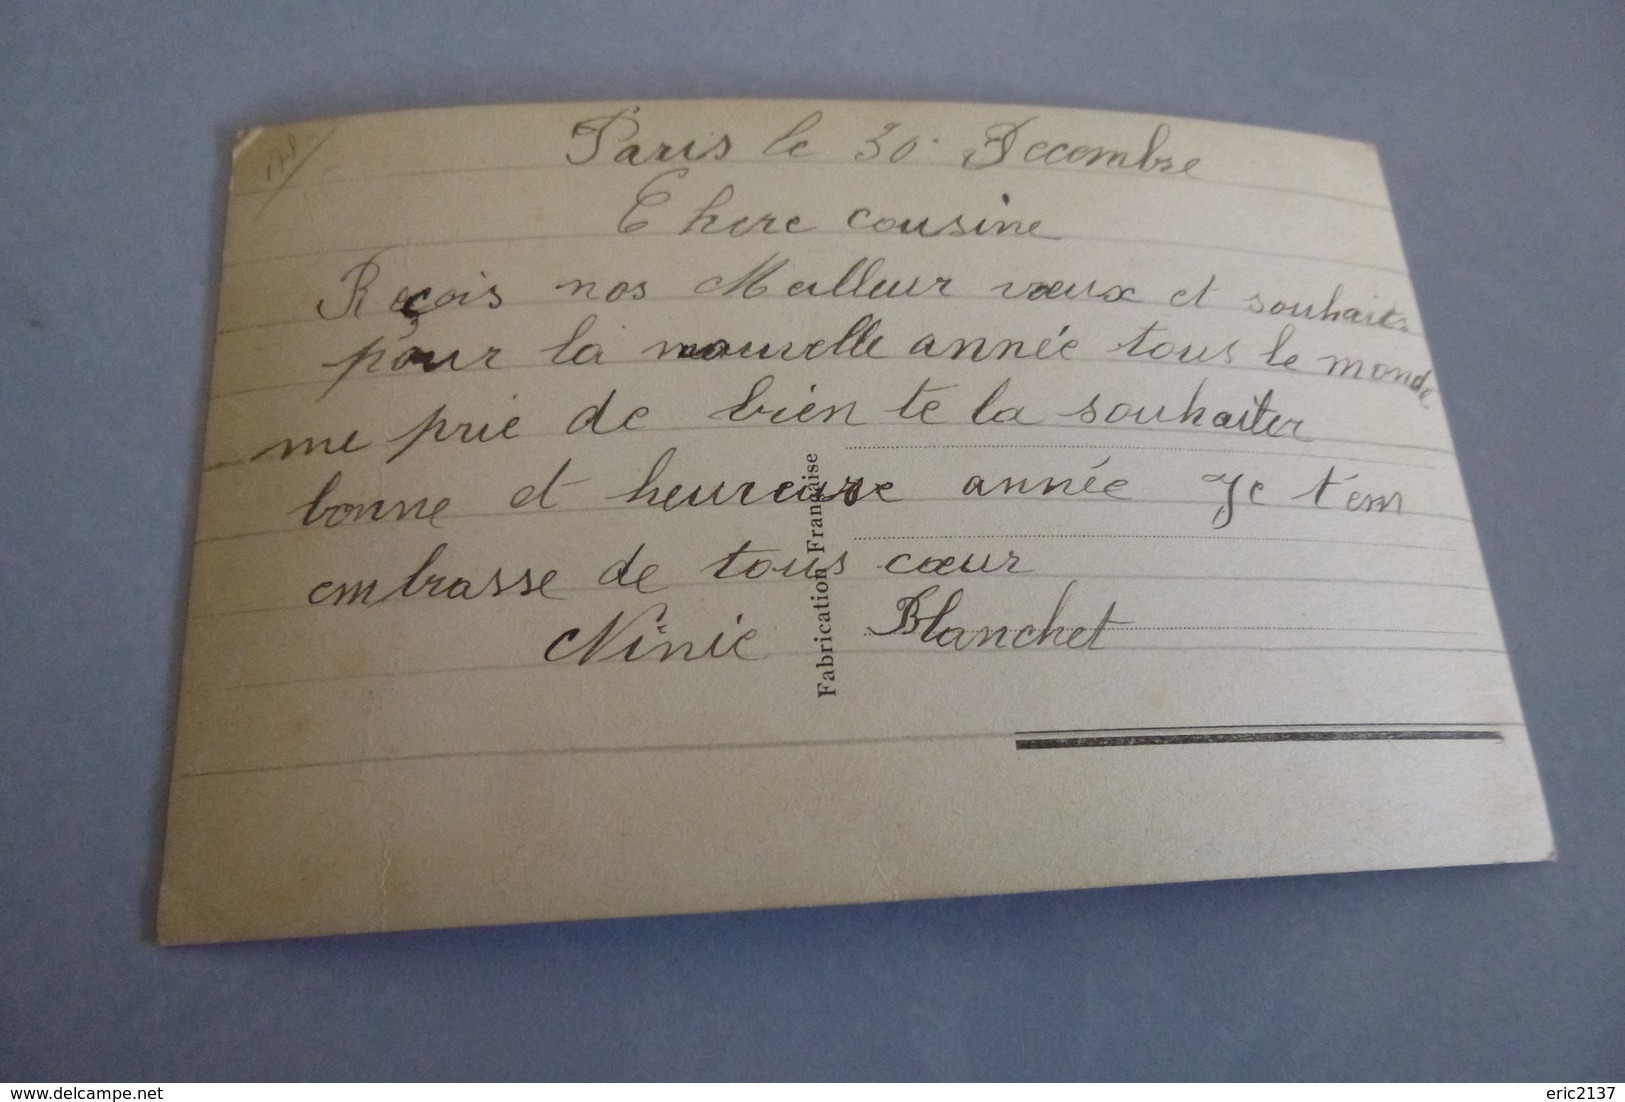 Paris le 30 Decembre
Chere cousine
Reçois nos Meilleur vœux et souhaits
pour la nouvelle année tous le monde
me prie de bien te la souhaiter
bonne et heureuse année Je t'em
embrasse de tous cœur
Ninie Blanchet
Fabrication Française
delcampe.net
eric2137